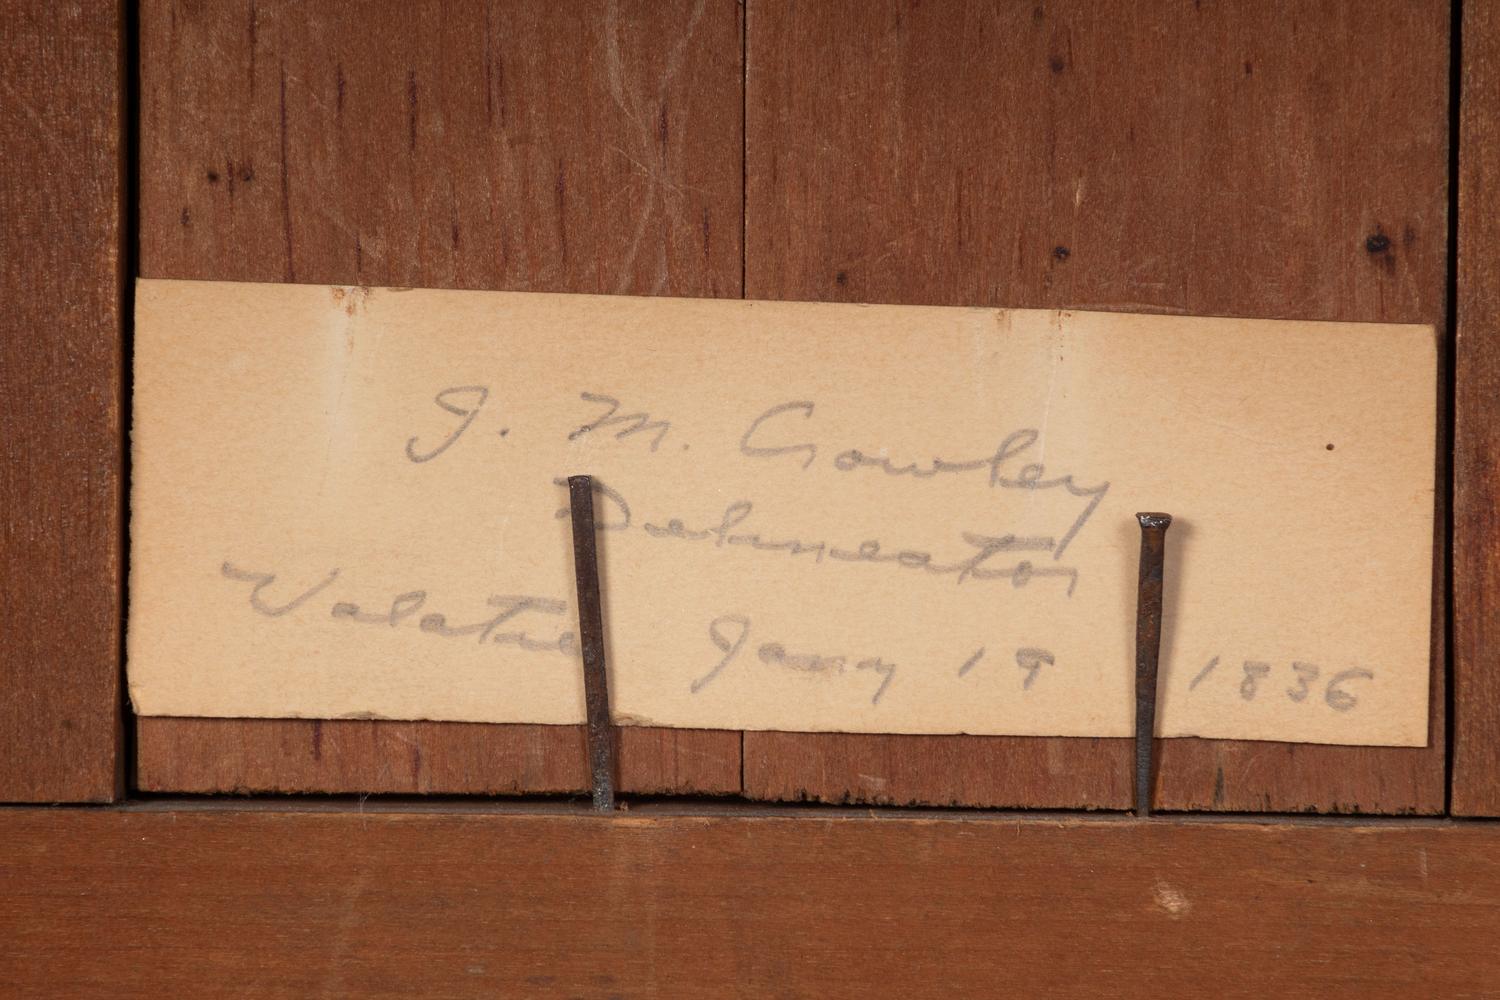 J. M. Crowley
Delineator
Valatie Jany 19 1836